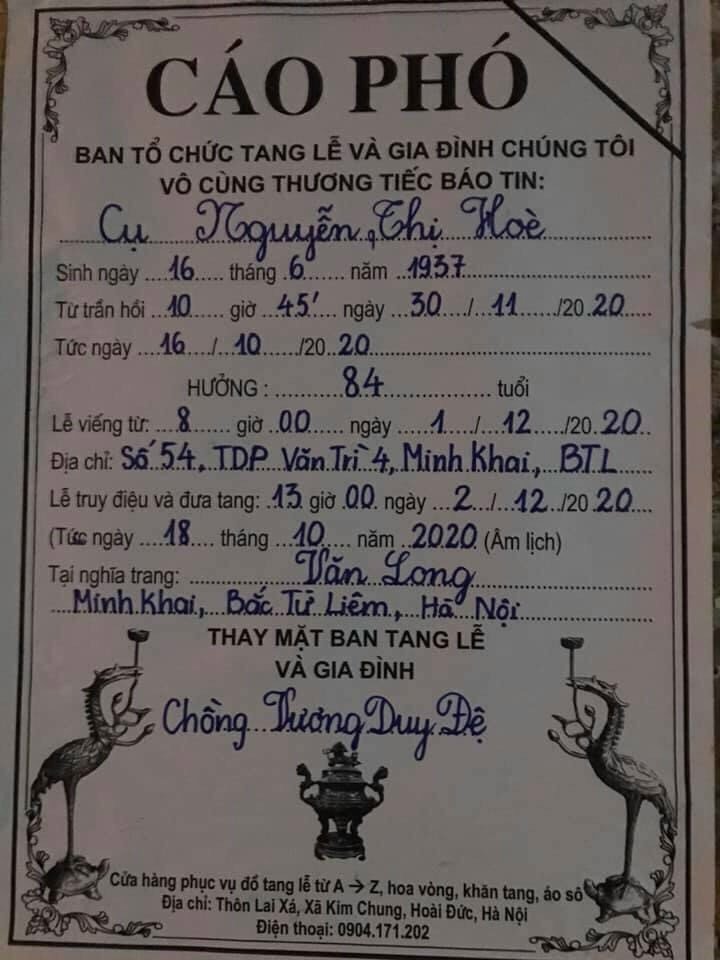 CÁO PHÓ
BAN TỔ CHỨC TANG LỄ VÀ GIA ĐÌNH CHÚNG TÔI
VÔ CÙNG THƯƠNG TIẾC BÁO TIN:
Cụ Nguyễn Thị Hoè
Sinh ngày 16 tháng 6 năm 1937
Từ trần hồi 10 giờ 45' ngày 30/11/2020
Tức ngày 16/10/2020
HƯỞNG: 84 tuổi
Lễ viếng từ: 8 giờ 00 ngày 1/12/2020
Địa chỉ: Số 54, TDP Văn Trì 4, Minh Khai, BTL
Lễ truy điệu và đưa tang: 13 giờ 00 ngày 2/12/2020
(Tức ngày 18 tháng 10 năm 2020 (Âm lịch)
Tại nghĩa trang: Văn Long
Minh Khai, Bắc Từ Liêm, Hà Nội
THAY MẶT BAN TANG LỄ
VÀ GIA ĐÌNH
Chồng Vương Duy Đệ
Cửa hàng phục vụ đồ tang lễ từ A → Z, hoa vòng, khăn tang, áo sô
Địa chỉ: Thôn Lai Xá, Xã Kim Chung, Hoài Đức, Hà Nội
Điện thoại: 0904.171.202